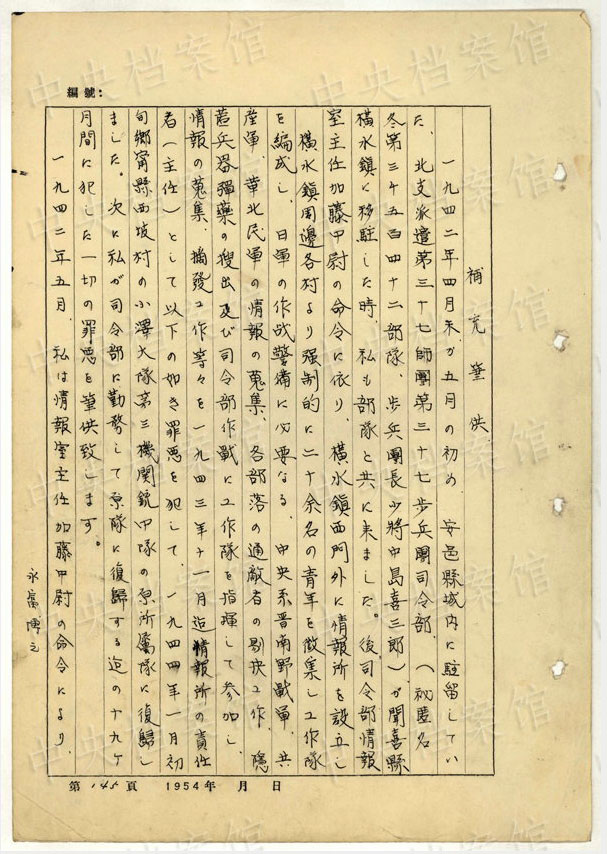 編號：
補充筆供
一九四二年四月末か五月の初め 安邑縣城内に駐留してい
た、北支派遣第三十七師團第三十七步兵團司令部、（祕匿名
冬第三千五百四十二部隊、步兵團長少將中島喜三郎）が聞喜縣
橫水鎮に移駐した時、私も部隊と共に来ました。後司令部情報
室主任加藤中尉の命令に依り、橫水鎮西門外に情報所を設立し
橫水鎮周邊各村より强制的に二十余名の青年を徴集し工作隊
を編成し、日軍の作战警備に必要なる、中央系晋南野戰軍、共
産軍、華北民軍の情報の蒐集、各部落の通敵者の剔抉工作、隱
匿兵器彈藥の搜出及び司令部作戰に工作隊を指揮して参加し、
情報の蒐集、摘發工作等々を一九四三年十一月迄情報所の責任
者（主任）として以下の如き罪悪を犯して、一九四四年一月初
旬鄉寧縣西坡村の小澤大隊第三機関銃中隊の原所屬隊に復歸し
ました。次に私が司令部に勤務して原隊に復歸する迄の十九ヶ
月間に犯した一切の罪悪を筆供致します。
一九四二年五月、私は情報室主任加藤中尉の命令により、
永富博之
第145頁 1954年 月 日
中央档案馆